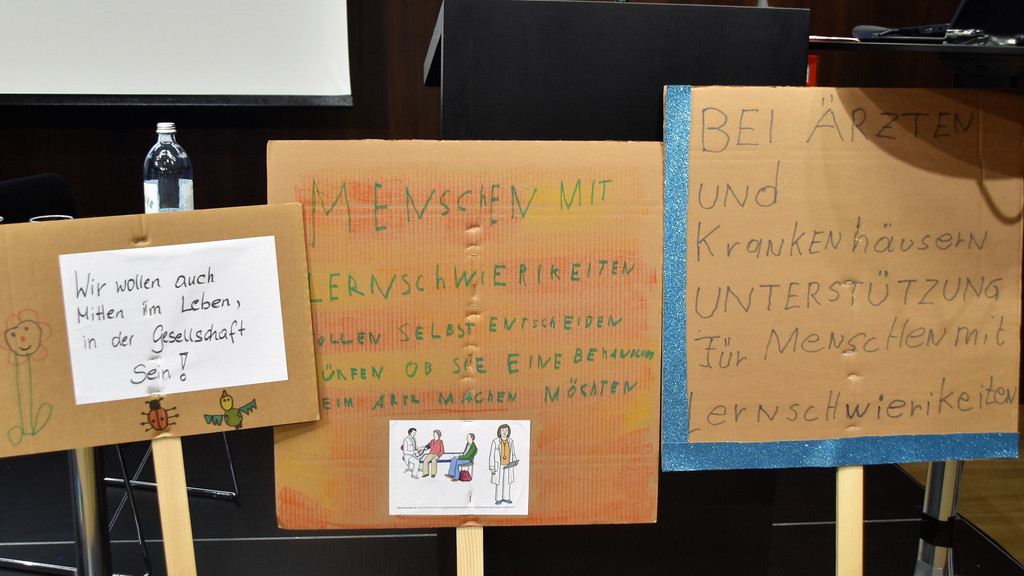 Wir wollen auch
Mitten im Leben,
in der Gesellschaft
Sein!
MENSCHEN MIT
LERNSCHWIERIKEITEN
OLLEN SELBST ENTSCHEIDEN
ÜRFEN OB SIE EINE BEHANDLUN
EIM ARTZ MACHEN MÖCHTEN
BEI ÄRZTEN
und
KrankenhäuserN
UNTERSTÜTZUNG
Für MenschEN mit
LernschwierikeiteN